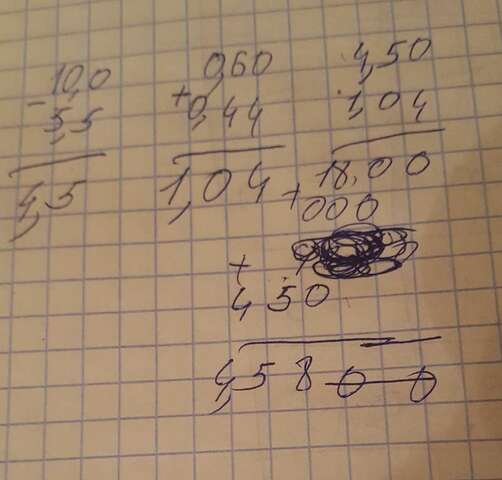 10,0
- 5,5
4,5
0,60
+ 0,44
1,04
4,50
1,04
18,00
+ 000
+ 450
4,58 0 0